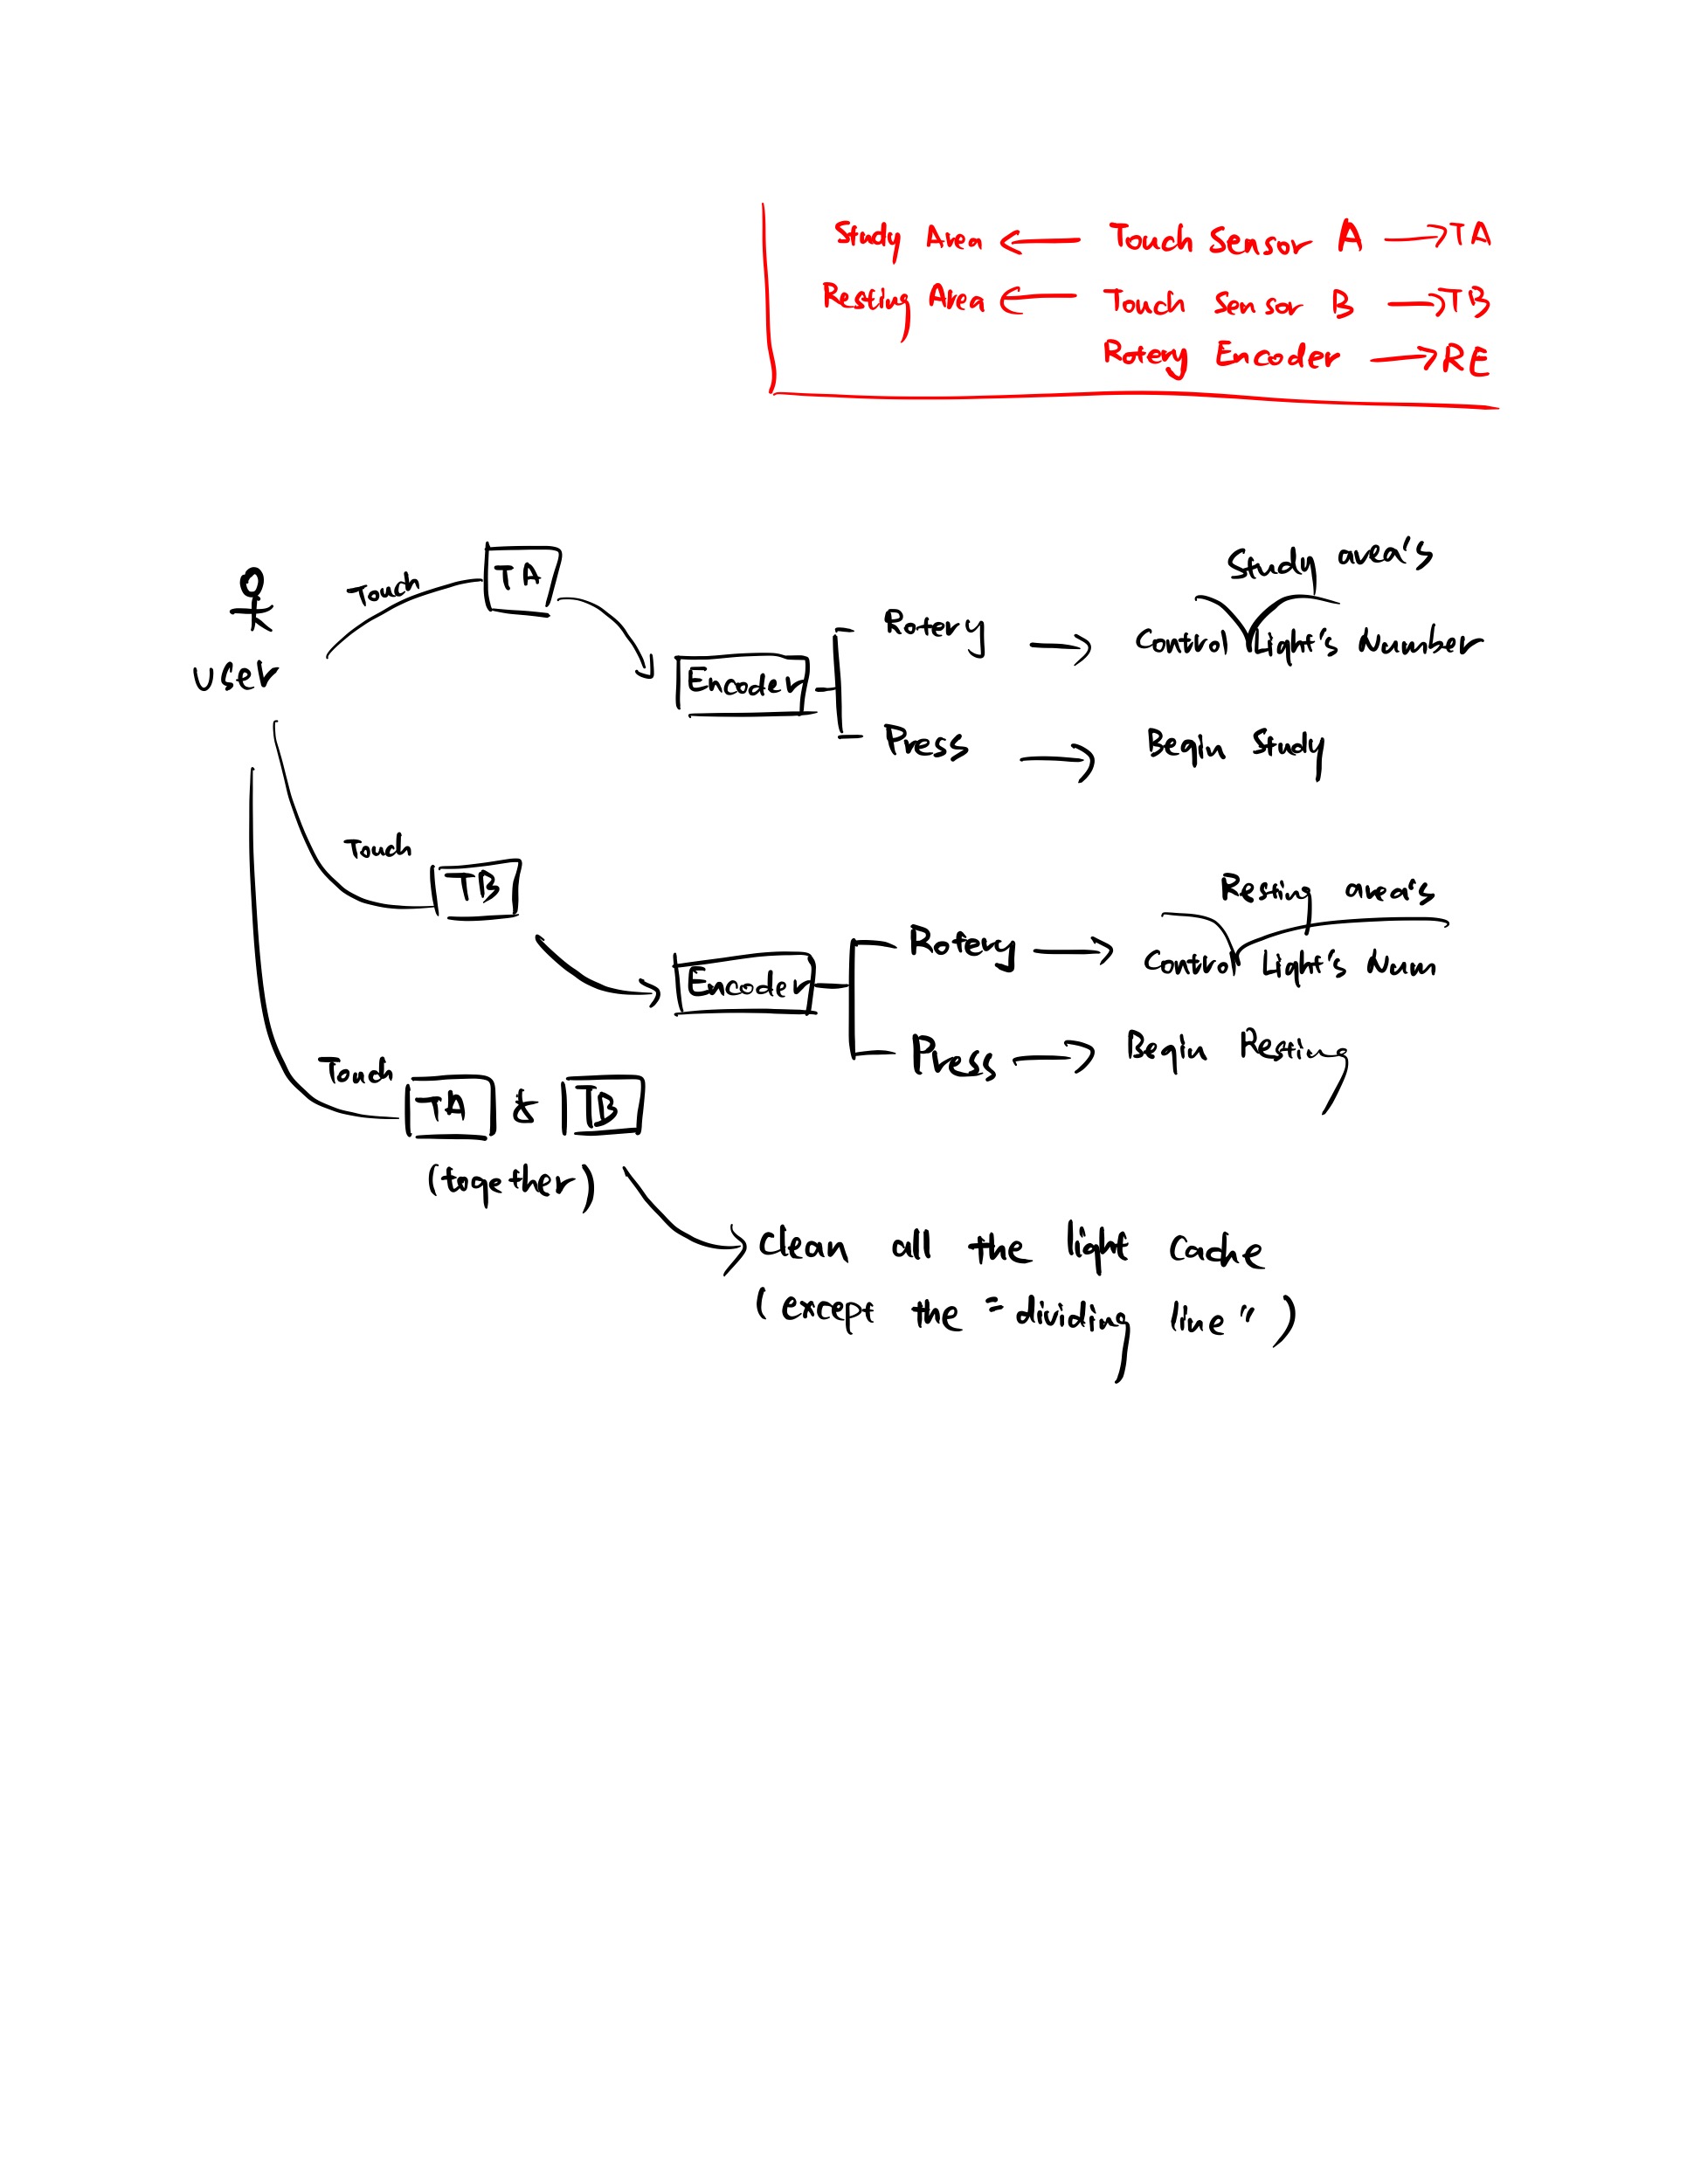 Study Area ← Touch Sensor A → TA
Resting Area ← Touch Sensor B → TB
Rotery Encoder → RE
User
Touch
TA
Encoder
Rotery → Control Light's Number
Study area's
Press → Begin Study
Touch
TB
Encoder
Rotery → Control Light's Num
Resting area's
Press → Begin Resting
Touch
TA & TB
(together)
clean all the light cache
(except the "dividing line")